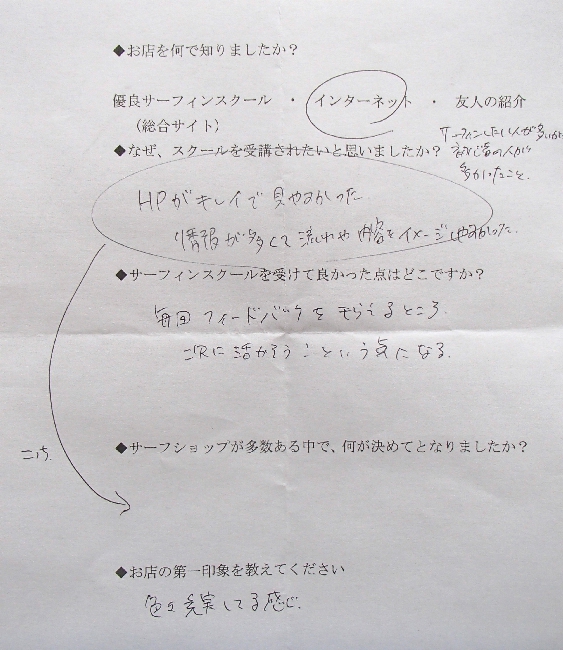 ◆お店を何で知りましたか?
優良サーフィンスクール ・ インターネット ・ 友人の紹介
(総合サイト)
サーフィンしたい人が多い
◆なぜ、スクールを受講されたいと思いましたか?
の人が
多かったこと。
HPがキレイで見やすかった
情報が多くて流れや内容をイメージしやすかった。
◆サーフィンスクールを受けて良かった点はどこですか?
毎回フィードバックをもらえるところ.
次に活かそうという気になる.
◆サーフショップが多数ある中で、何が決めてとなりましたか?
こち
◆お店の第一印象を教えてください
色々充実してる感じ.